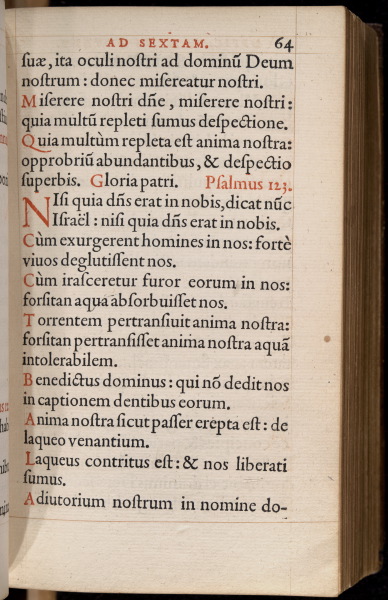 AD SEXTAM. 64
ſuæ, ita oculi noſtri ad dominũ Deum
noſtrum : donec miſereatur noſtri.
Miſerere noſtri dñe, miſerere noſtri:
quia multũ repleti ſumus deſpectione.
Quia multùm repleta eſt anima noſtra:
opprobriũ abundantibus, & deſpectio
ſuperbis. Gloria patri. Pſalmus 123.
NIſi quia dñs erat in nobis, dicat nũc
Iſraël : niſi quia dñs erat in nobis.
Cùm exurgerent homines in nos: fortè
viuos deglutiſſent nos.
Cùm iraſceretur furor eorum in nos:
forſitan aqua abſorbuiſſet nos.
Torrentem pertranſiuit anima noſtra:
forſitan pertranſiſſet anima noſtra aquã
intolerabilem.
Benedictus dominus : qui nõ dedit nos
in captionem dentibus eorum.
Anima noſtra ſicut paſſer erepta eſt : de
laqueo venantium.
Laqueus contritus eſt : & nos liberati
ſumus.
Adiutorium noſtrum in nomine do-